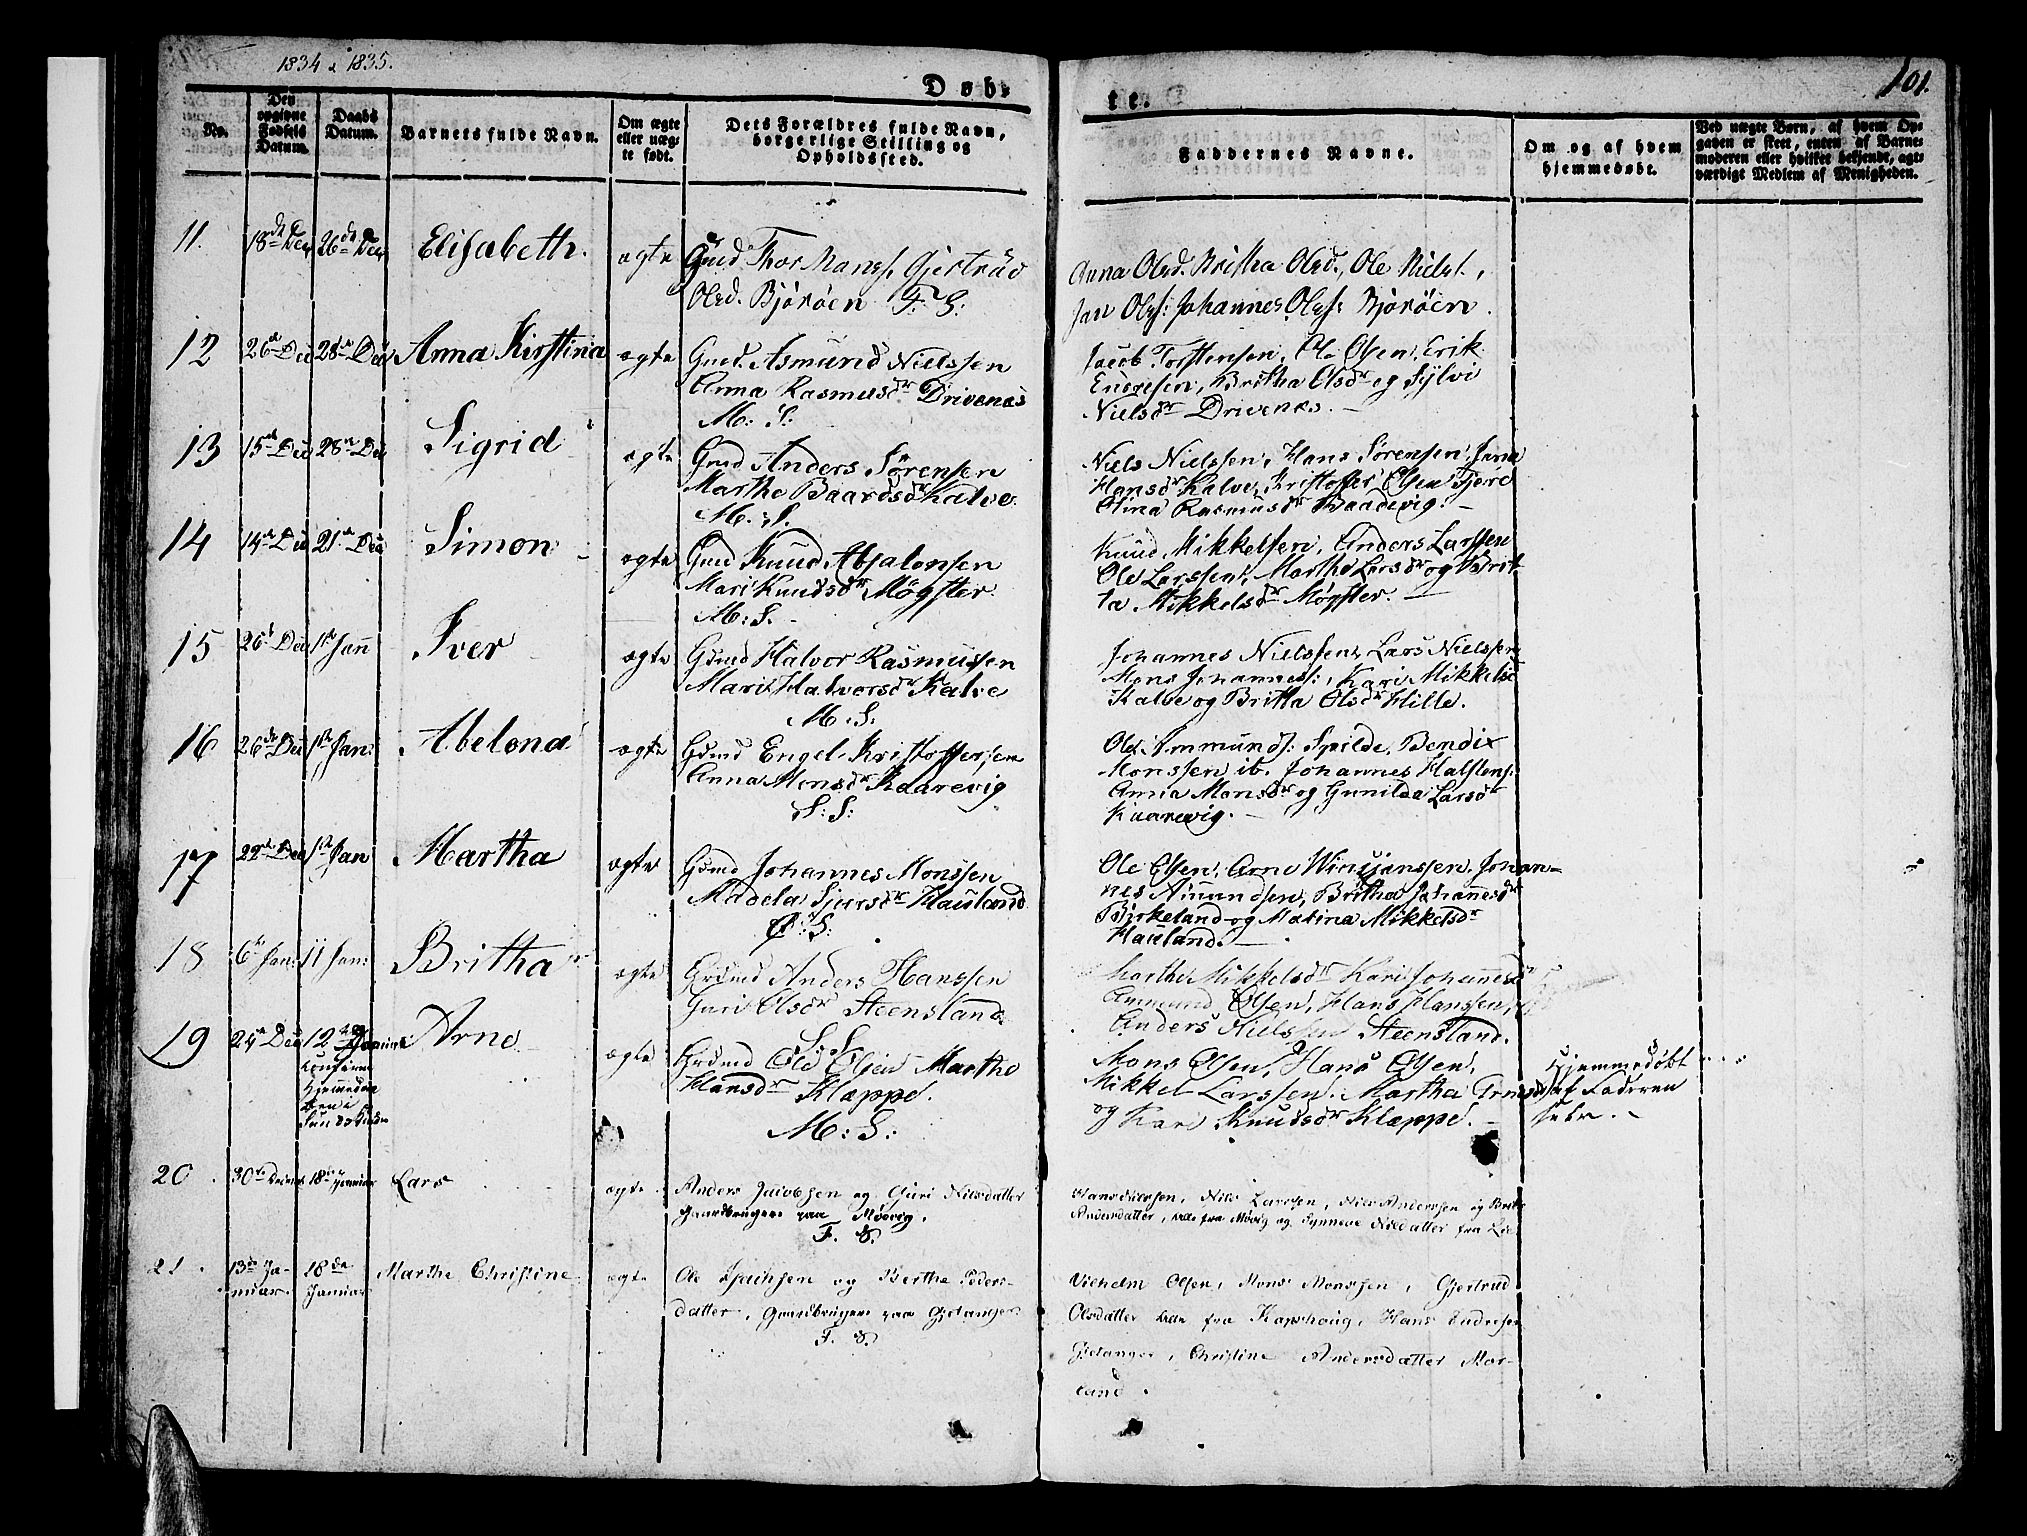 1834 & 1835.
Døb-
te.
101.
No.
Den opgivne Fødsels Datum.
Daabs Datum.
Barnets fulde Navn.
Om ægte eller uægte født.
Dets Forældres fulde Navn, borgerlige Stilling og Opholdsted.
Faddernes Navne.
Om og af hvem hjemmedøbt.
Ved uægte Børn, af hvem Opgaven er skeet, enten af Barnemoderen eller hvilket bekjendt, agtværdigt Medlem af Menigheden.
11.
18de Dec
26de Dec
Elisabeth.
ægte
Gmd Thor Monss. Giertrud
Olsd. Bjørøen F. S:
Anna Olsd. Britha Olsd, Ole Nielss.,
Jan Olss: Johannes Olss: Bjørøen.
12
26de Dec
28de Dec
Anna Kirstina
ægte
Gmd. Asmund Nielssen
Anna Rasmusdr Drivenes
M: S:
Jacob Torstensen, Ole Olsen, Erik
Endresen, Britha Olsdr og Sylvi
Nielsdr Drivenes. -
13
15de Dec
28de Dec
Sigrid
ægte
Gmd Anders Sörensen
Martha Baardsdr Kalve
M. S.
Niels Nielssen, Hans Sörensen,
Hansdr Kalve, Kristoffer Olsen
Olina Rasmusdr Vaadevig. -
14
14de Dec
21de Dec
Simon
ægte
Gmd Knud Absalonsen
Mari Knudsdr Mögster
M: S.
Knud Mikkelsen, Anders Larssen
Ole Larssen, Martha Larsdr og Brit-
ta Mikkelsdr Mögster. -
15
26de Dec
1ste Jan
Iver
ægte
Gmd Halvor Rasmussen
Marit Halvorsdr Kalve
M: S:
Johannes Nielssen, Lars Nielssen
Mons Johanness:, Kari Mikkelsd
Kalve og Britta Olsdr Hille.
16
26de Dec
1ste Jan:
Abelona
ægte
Gmd Engel Kristoffersen
Anna Monsdr Kaarevig
S: S:
Ole Ammunds: Spilde, Bendix
Monssen ib. Johannes Halstens:
Anna Monsdr og Gunilda Larsdr
Kaarevig. -
17
29de Dec
1ste Jan
Martha
ægte
Gmd Johannes Monssen
Madela Sjursdr Hauland
S:
Ole Olsen, Arne Johan-
nes Amundsen, Britha Johannesdr
Birkeland og Malina Mikkelsdr
Hauland. -
18
6te Jan:
11 Jan:
Britha
ægte
Grmd Anders Hanssen
Guri Olsdr Steensland
S. S.
Marthe Mikkelsdr Kari Johannesdr
Ammund Olsen, Hans Hanssen,
Anders Nielssen Steensland.
19
24de Dec
12te
Arne
ægte
Grmd Ole Olsen Martha
Hansdr Klæppe.
M: S:
Mons Olsen, Hans Olsen,
Mikkel Larssen. Martha
og Kari Knudsdr Klæppe. -
Hjemmedøbt
af Faderen
selv. -
20
30te Decemb
18de Januar
Lars
ægte
Anders Jacobsen og Guri Nilsdatter
Gaardbruger paa Møvig.
F. S.
Hans Nilssen, Nils Larssen, Nils Anderssen og Brite
Andersdatter, alle fra Møvig og Synneve Nilsdatter fra Lie
21.
13de Ja-
nuar.
18de
Januar
Marthe Christine
ægte
Ole Isachsen og Berthe Peders-
datter, Gaardbruger paa Gjetanger
F. S.
Vilhelm Olsen, Mons Monssen, Gjertrud
Olsdatter alle fra Kapshoug, Hans Endresen
Gjetanger, Christine Andersdatter Mor-
land.